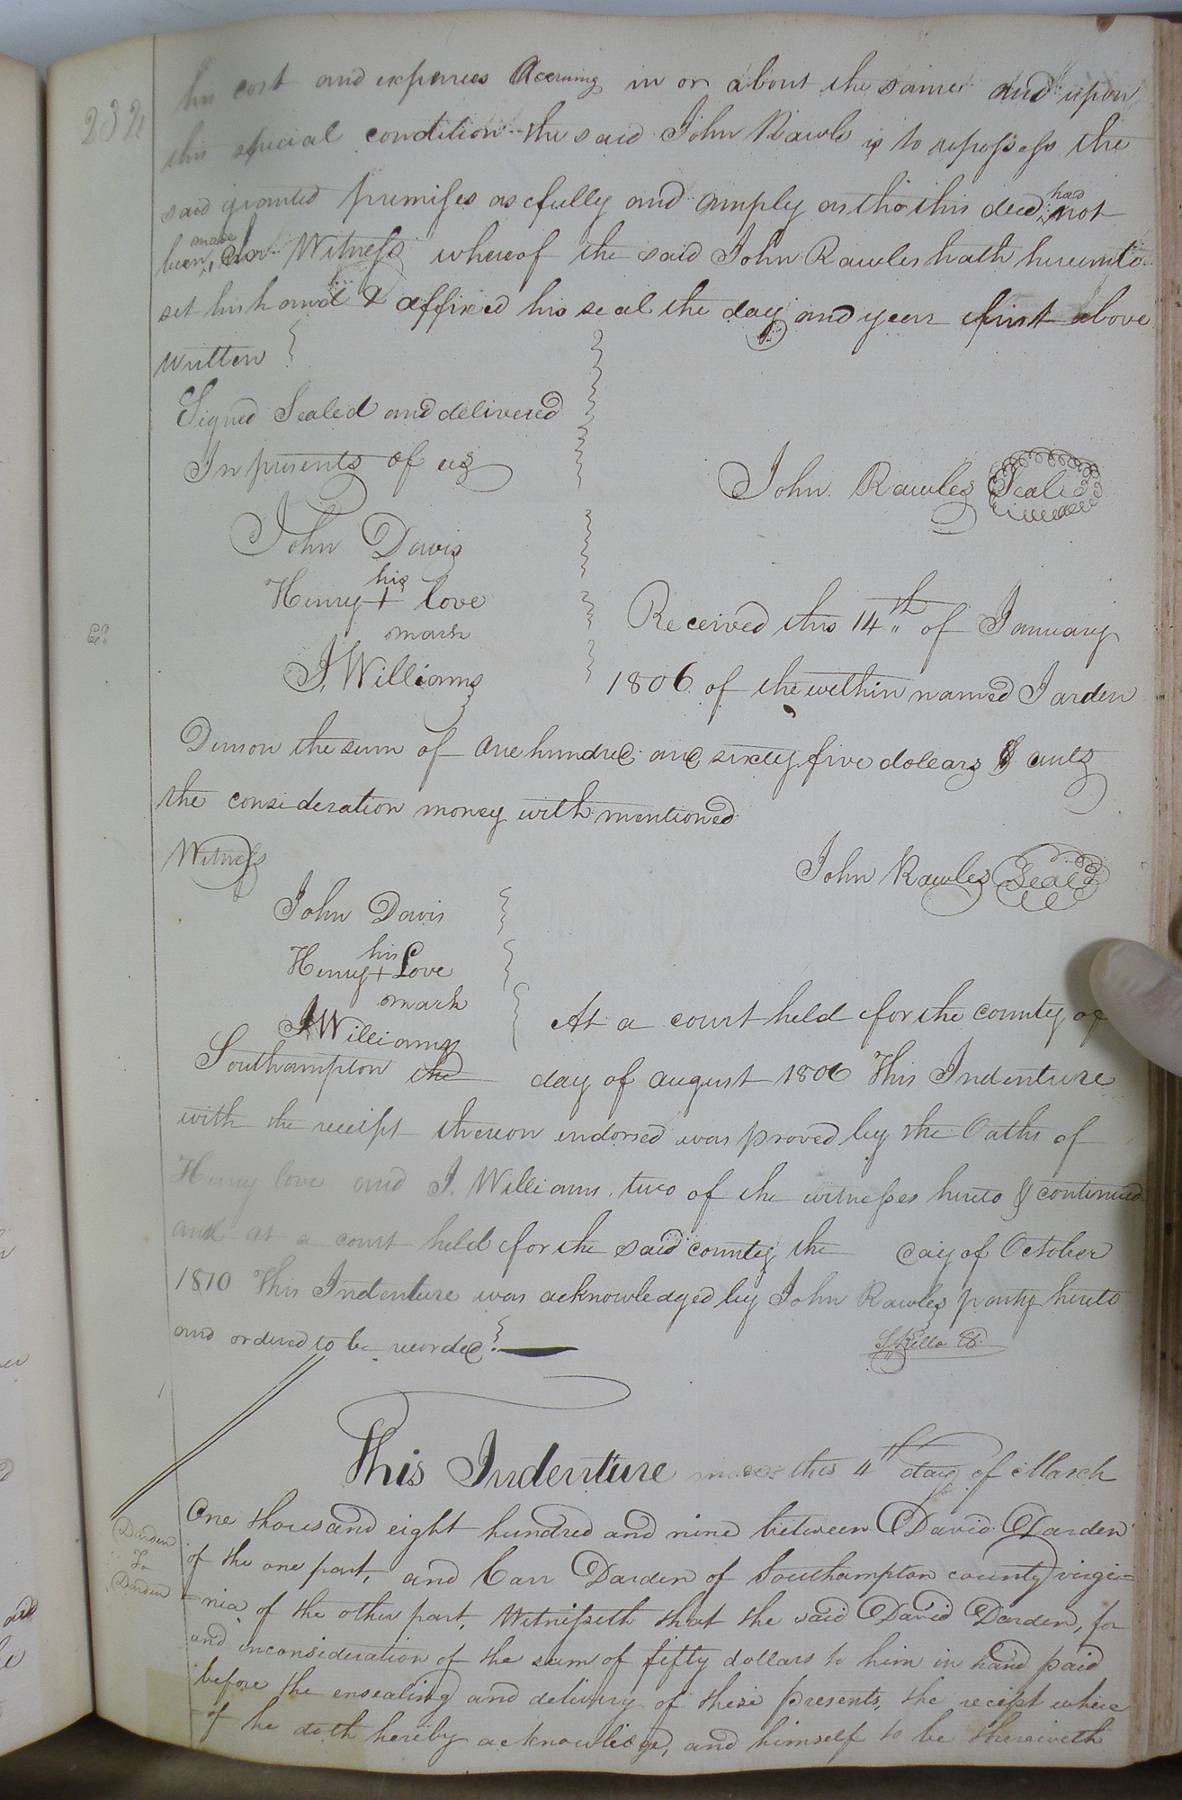 232
his cost and expences Accruing in or about the same and upon
this special condition the said John Rawls is to repossess the
said granted premises as fully and amply as tho this deed had not
been made, In Witness whereof the said John Rawles hath hereunto
set his hand & affixed his seal the day and year first above
written
Signed Sealed and delivered
In presents of us
John Rawles Seal
John Davis
Henry his + love
mark
J. Williams
Received this 14th of January
1806 of the within named Jarden
Denson the sum of one hundred and sixty five dollars & cents
the consideration money with mentioned
Witness
John Rawles Seal
John Davis
Henry his + Love
mark
J Williams
At a court held for the county of
Southampton the day of august 1806 This Indenture
with the receipt thereon endorsed was proved by the Oaths of
Henry love and J. Williams two of the witnesses hereto & continued
and at a court held for the said county the day of October
1810 This Indenture was acknowledged by John Rawles party hereto
and ordered to be recorded
This Indenture made this 4th day of March
Darden
To
Darden
One thousand eight hundred and nine between David Darden
of the one part, and Carr Darden of Southampton county virgi=
-nia of the other part, Witnisseth that the said David Darden, for
and inconsideration of the sum of fifty dollars to him in hand paid
before the ensealing and delivery of these presents, the receipt where
-of he doth hereby acknowledge, and himself to be therewith